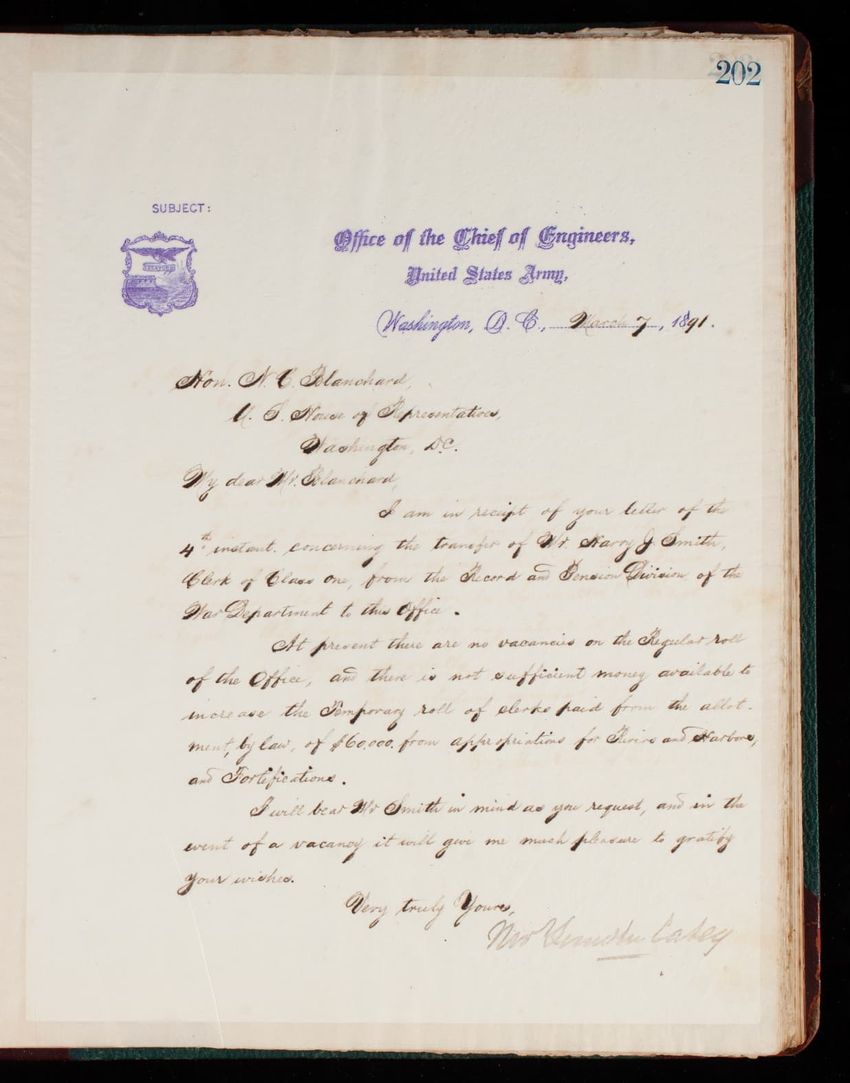 202
SUBJECT:
Office of the Chief of Engineers,
United States Army,
Washington, D. C., March 7, 1891.
Hon. N. C. Blanchard,
U. S. House of Representatives,
Washington, D.C.
My dear Mr. Blanchard,
I am in receipt of your letter of the
4th instant, concerning the transfer of Mr. Harry J. Smith,
Clerk of Class One, from the Record and Pension Division of the
War Department to this Office.
At present there are no vacancies on the Regular roll
of the Office, and there is not sufficient money available to
increase the Temporary roll of clerks paid from the allot-
ment, by law, of $60,000. from appropriations for Rivers and Harbors,
and Fortifications.
I will bear Mr Smith in mind as you request, and in the
event of a vacancy it will give me much pleasure to gratify
your wishes.
Very truly Yours,
Casey